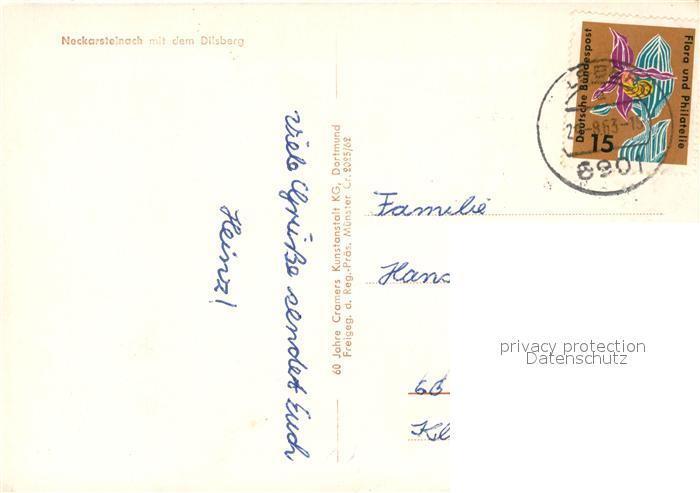 Neckarsteinach mit dem Dilsberg
Viele Grüße sendet Euch
Heinz!
60 Jahre Cramers Kunstanstalt KG, Dortmund
Freigeg. d. Reg.-Präs. Münster Cr. 2025/62
Deutsche Bundespost
15
Flora und Philatelie
6901
Familie
Hans
privacy protection
Datenschutz
6B
Kl